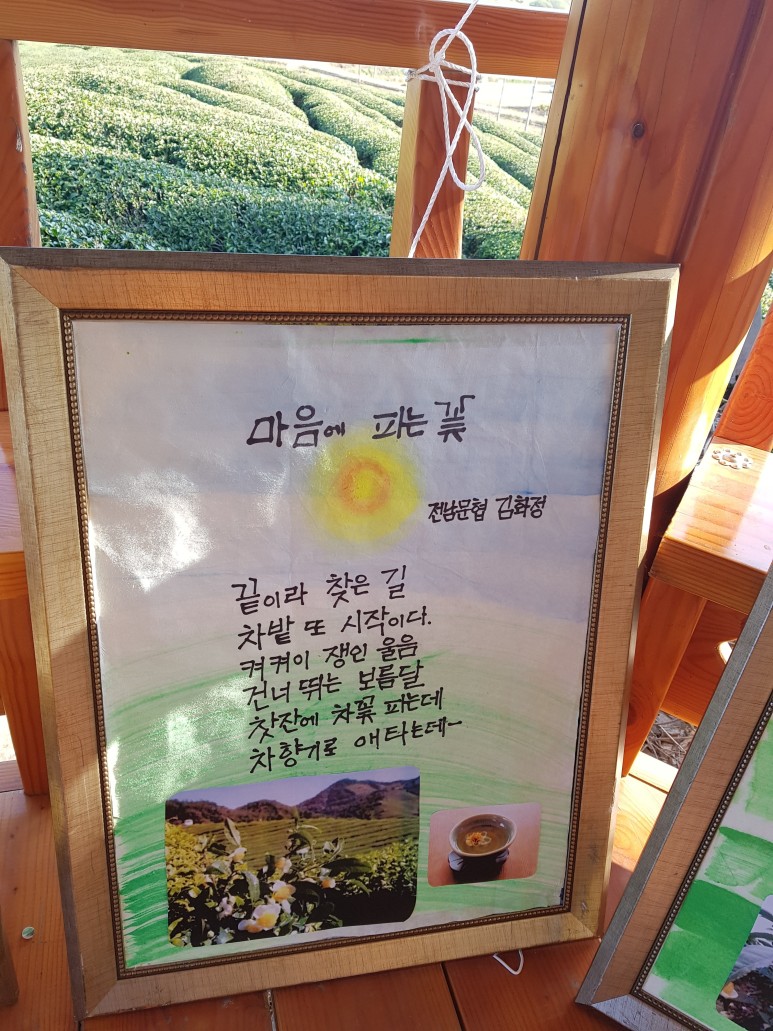 마음에 피는 꽃
전남문협 김화정
끝이라 찾은 길
차밭 또 시작이다.
켜켜이 쟁인 울음
건너뛰는 보름달
찻잔에 차꽃 피는데
차향기로 애타는데~